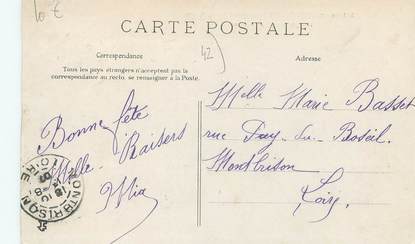 10 €
CARTE POSTALE
42
Correspondance
Adresse
Tous les pays étrangers n'acceptent pas la
correspondance au recto, se renseigner à la Poste.
Melle Marie Basset
rue Puy-du-
Montbrison
Loire
Bonne fête
Mille Baisers
Mia
MONTBRISON
LOIRE